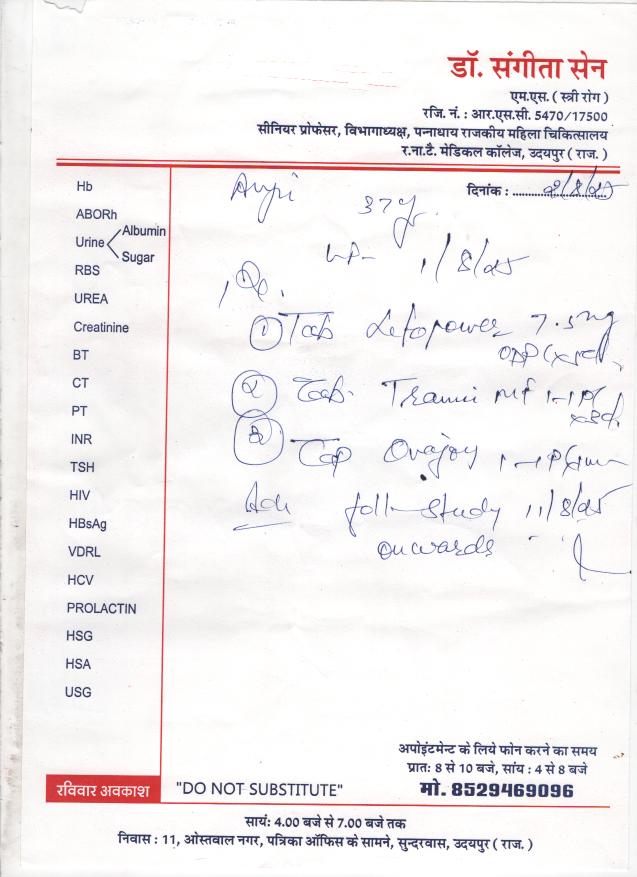 डॉ. संगीता सेन
एम.एस. ( स्त्री रोग )
रजि. नं. : आर.एस.सी. 5470/17500
सीनियर प्रोफेसर, विभागाध्यक्ष, पन्नाधाय राजकीय महिला चिकित्सालय
र.ना.टै. मेडिकल कॉलेज, उदयपुर ( राज. )
दिनांक :
37y
1/8/25
Hb
ABORh
Urine Albumin
Sugar
RBS
UREA
Creatinine
BT
CT
PT
INR
TSH
HIV
HBsAg
VDRL
HCV
PROLACTIN
HSG
HSA
USG
1 Tab Letopower 7.5mg
Tab. MF
Cap Ovajoy
Adv foll-study 11/8/25
onwards
अपोइंटमेन्ट के लिये फोन करने का समय
प्रातः 8 से 10 बजे, सांय : 4 से 8 बजे
रविवार अवकाश "DO NOT SUBSTITUTE" मो. 8529469096
सायं: 4.00 बजे से 7.00 बजे तक
निवास : 11, ओस्तवाल नगर, पत्रिका ऑफिस के सामने, सुन्दरवास, उदयपुर ( राज. )